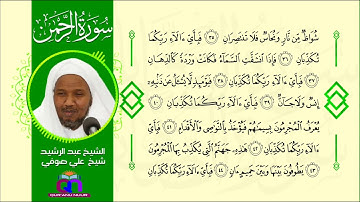 سُورَةُ الرَّحْمَٰن
شُوَاظٌ مِّن نَّارٍ وَنُحَاسٌ فَلَا تَنتَصِرَانِ ٣٥ فَبِأَيِّ ءَالَآءِ رَبِّكُمَا
تُكَذِّبَانِ ٣٦ فَإِذَا ٱنشَقَّتِ ٱلسَّمَآءُ فَكَانَتْ وَرْدَةً كَٱلدِّهَانِ
٣٧ فَبِأَيِّ ءَالَآءِ رَبِّكُمَا تُكَذِّبَانِ ٣٨ فَيَوْمَئِذٍ لَّا يُسْـَٔلُ عَن ذَنۢبِهِۦٓ
إِنسٌ وَلَا جَآنٌّ ٣٩ فَبِأَيِّ ءَالَآءِ رَبِّكُمَا تُكَذِّبَانِ ٤٠
يُعْرَفُ ٱلْمُجْرِمُونَ بِسِيمَٰهُمْ فَيُؤْخَذُ بِٱلنَّوَٰصِى وَٱلْأَقْدَامِ ٤١ فَبِأَيِّ ءَالَآءِ رَبِّكُمَا
تُكَذِّبَانِ ٤٢ هَٰذِهِۦ جَهَنَّمُ ٱلَّتِى يُكَذِّبُ بِهَا ٱلْمُجْرِمُونَ
٤٣ يَطُوفُونَ بَيْنَهَا وَبَيْنَ حَمِيمٍ ءَانٍ ٤٤ فَبِأَيِّ ءَالَآءِ رَبِّكُمَا تُكَذِّبَانِ
الشيخ عبد الرشيد
شيخ علي صوفي
QUR'ANU NUUR